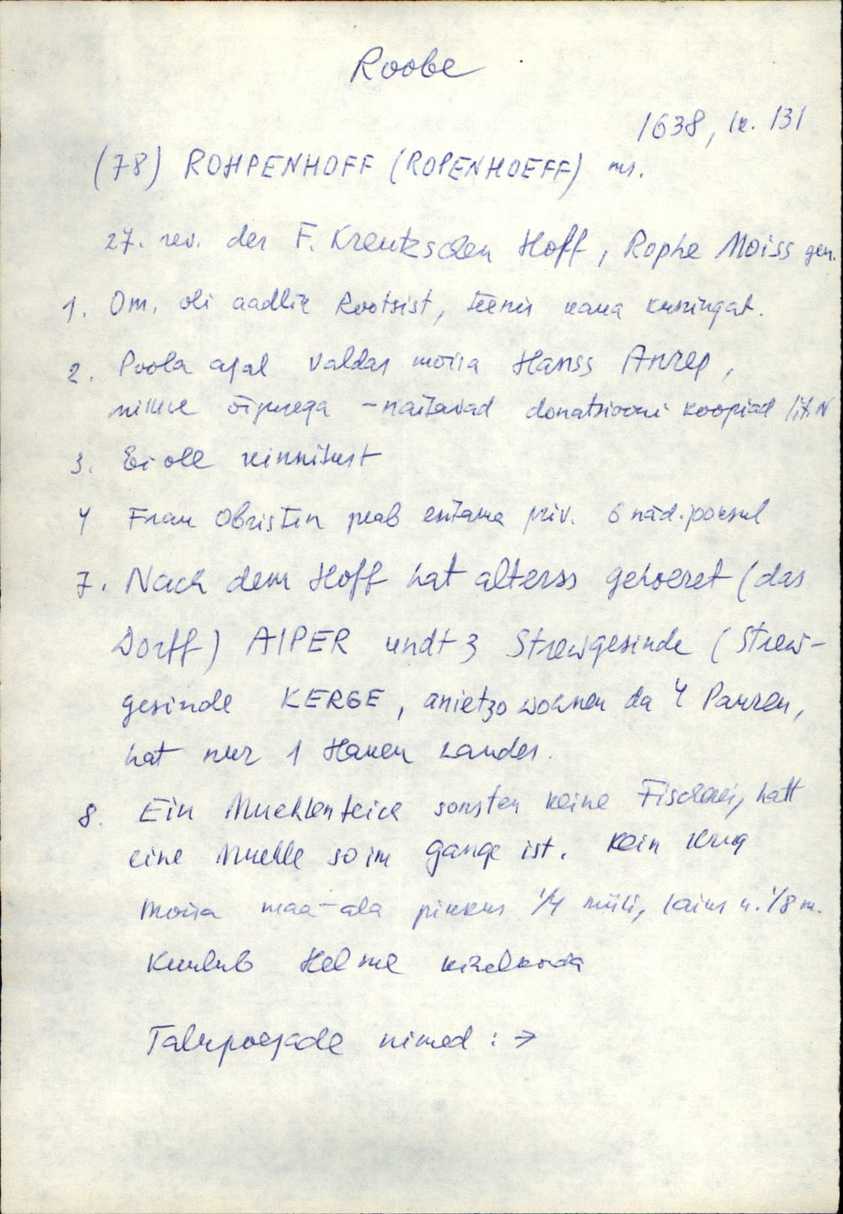 Roobe
1638, lk. 131
(78) ROHPENHOFF (ROPENHOEFF) ms.
27. rev. der F. Kreutzschen Hoff, Rophe Moiss gen.
1. Om. oli aadlik Rootsist, teenis vana kuningat.
2. Poola ajal valdas mõisa Hanss Anrep,
õigusega - näitavad donatsiooni koopiad lit. N
3. Ei ole kinnitust
4 Frau Obristin peab esitama priv. 6 näd. jooksul
7. Nach dem Hoff hat alterss gehoeret (das
Dorff) AIPER undt 3 Strewgesinde (Strew-
gesinde KERGE, anietzo wohnen da 4 Pauren,
hat nur 1 Haken Landes.
8. Ein Muehlenteich sonsten keine Fischerei, hatt
eine Muehle so im gange ist. Kein Krug
Mõisa maa-ala pikkus 1/4 miili, laius u. 1/8 m.
Kuulub Helme kihelkonda
Talupoegade nimed : →